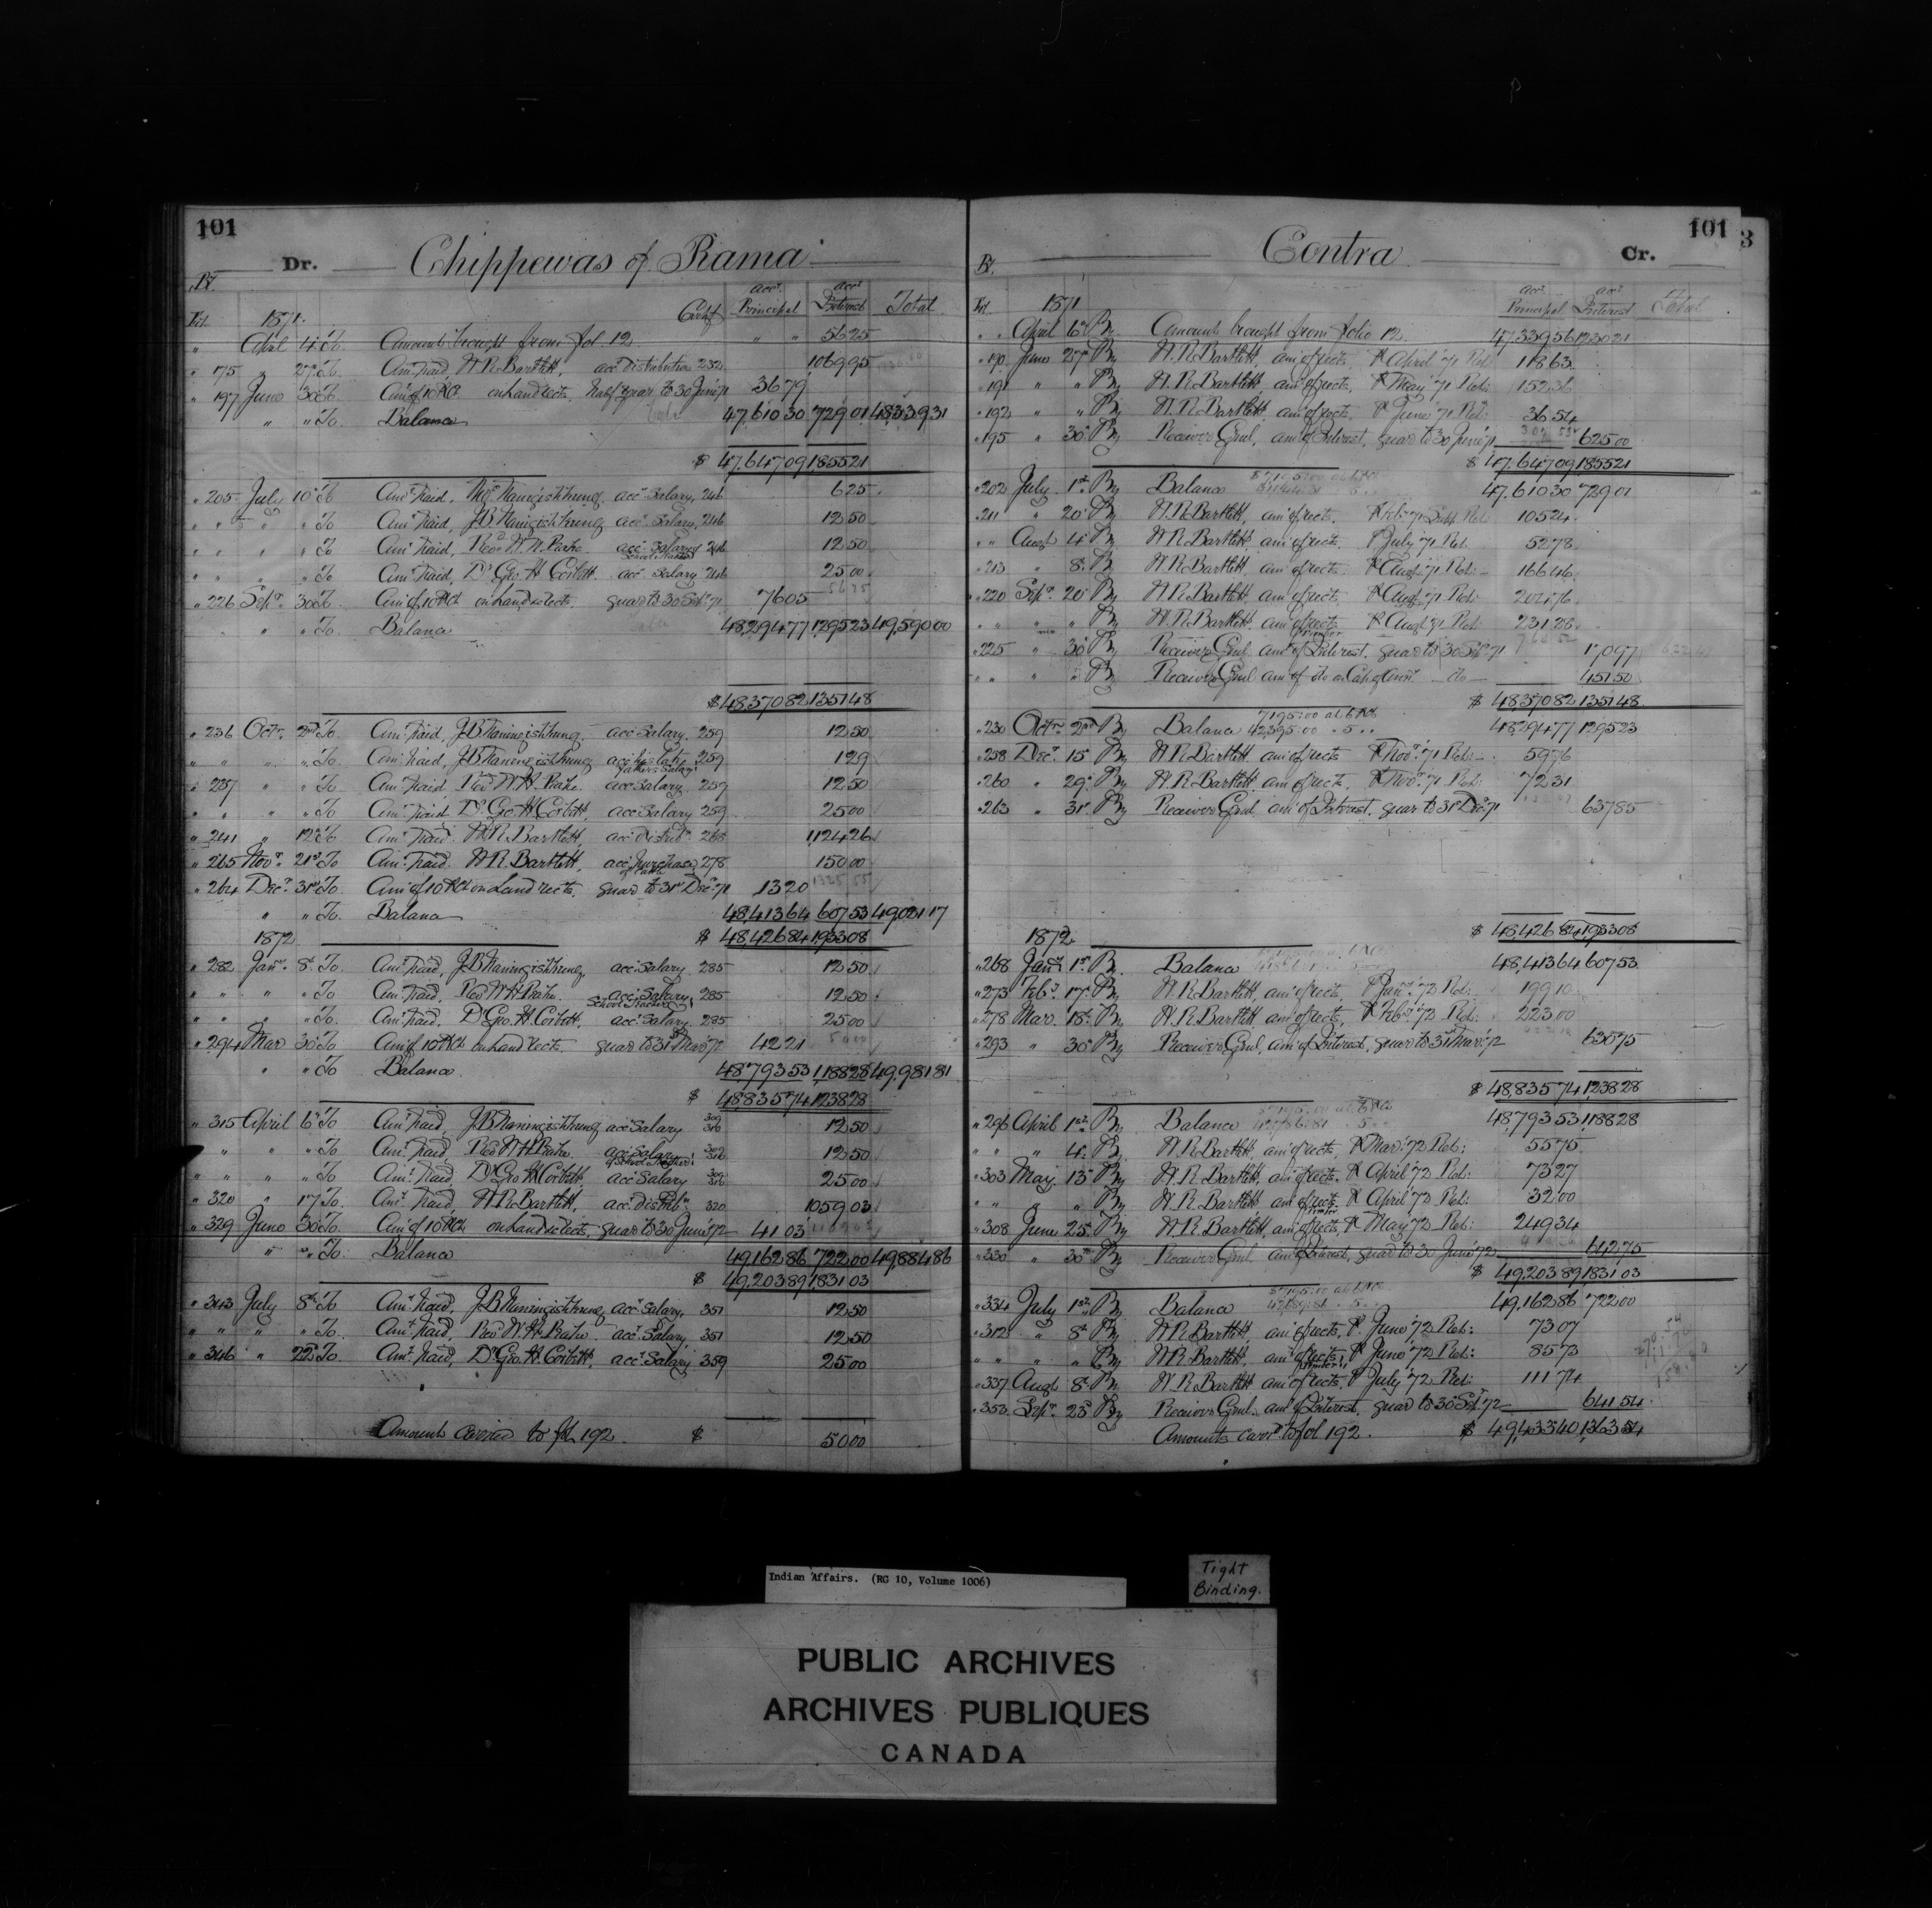 101
Dr. Chippewas of Rama
Fol. 1871. Certf. acct. Principal acct. Interest Total
" April 4 To Amounts brought from fol 12 " " 56 25
" 175 " 27 To Amt. Paid, W.R. Bartlett, acct. distribution 232 1069 95
" 197 June 30 To Amt. of 10 P Ct. on land rects. half year to 30 June 71 36 79
" " To Balance 47,610 30 729 01 48,339 31
$ 47,647 09 1,855 21
" 205 July 10 To Amt. Paid, Thos. Naningishkung acct. Salary, 246 6 25
" " " " To Amt. Paid, J.B. Naningishkung acct. Salary, 246 12 50
" " " " To Amt. Paid, Revd. W.H. acct. Salary School Teacher 246 12 50
" " " " To Amt. Paid, Dr. Geo. H. Corbett. acct. Salary 246 25 00
" 226 Sepr. 30 To Amt. of 10 P Ct. on land rects. quar to 30 Sep 71 76 05
" " To Balance 48,294 77 1,295 23 49,590 00
$ 48,370 82 1,351 48
" 236 Octr. 2nd To Amt. Paid, J.B. Naningishkung, acct. Salary 259 12 50
" " " " To Amt. Paid, J.B. Naningishkung acct. his late father's Salary 259 1 29
" 237 " " To Amt. Paid Revd. W.H. acct. Salary 259 12 50
" " " To Amt. Paid Dr. Geo. H. Corbett, acct. Salary 259 25 00
" 241 " 12 To Amt. Paid W.R. Bartlett, acct. distribn. 268 1,124 26
" 265 Novr. 21st To Amt. Paid W.R. Bartlett, acct. purchase of cattle 278 150 00
" 264 Decr. 31st To Amt. of 10 P Ct. on Land rects. quar to 31st Decr. 71 13 20
" " To Balance 48,413 64 607 53 49,021 17
1872 $ 48,426 84 1,933 08
" 282 Jany. 8 To Amt. Paid, J.B. Naningishkung, acct. Salary 285 12 50
" " " " To Amt. Paid, Revd. W.H. acct. Salary School Teacher 285 12 50
" " " " To Amt. Paid, Dr. Geo. H. Corbett, acct. Salary 285 25 00
" 294 Mar 30 To Amt. of 10 P Ct. on land rects. quar to 31st Mar. 72 42 21
" " To Balance. 48,793 53 1,188 28 49,981 81
$ 48,835 74 1,238 28
" 315 April 6 To Amt. Paid, J.B. Naningishkung acct. Salary 12 50
" " " To Amt. Paid, Revd. W.H. acct. Salary 12 50
" " " " To Amt. Paid, Dr. Geo. H. Corbett, acct. Salary 25 00
" 320 " 17 To Amt. Paid, W.R. Bartlett, acct. distribn. 320 1059 03
" 329 June 30 To Amt. of 10 P Ct. on land rects. quar to 30 June 72 41 03
" " To Balance 49,162 86 722 00 49,884 86
$ 49,203 89 1,831 03
" 343 July 8 To Amt. Paid, J.B. Naningishkung, acct. Salary, 351 12 50
" " " " To Amt. Paid, Revd. W.H. acct. Salary, 351 12 50
" 346 " 22nd To Amt. Paid, Dr. Geo. H. Corbett, acct. Salary 359 25 00
Amounts carried to fol. 192. $ 50 00
101
3
Contra Cr.
Fol. 1871 acct. Principal acct. Interest Total
" " April 6 By Amounts brought from folio 12 47,339 56 1230 21
" 190 June 27 By W.R. Bartlett, amt. of rects, P April 71 Ret: 118 63
" 191 " " By W.R. Bartlett, amt. of rects, P May 71 Ret: 152 36
" 192 " " By W.R. Bartlett, amt. of rects, P June 71 Ret: 36 54
" 195 " 30 By Receiver Genl, amt. of Interest, quar to 30 June 71 625 00
$ 47,647 09 1855 21
" 202 July 1st By Balance 47,610 30 729 01
" 211 " 20 By W.R. Bartlett, amt. of rects. 105 24
" " Augt 4 By W.R. Bartlett amt. of rects. P July 71 Ret. 52 78
" 213 " 8 By W.R. Bartlett, amt. of rects. P Augt. 71 Ret: 166 46
" 220 Sepr. 20 By W.R. Bartlett amt. of rects, P Augt 71 Ret: 204 76
" " " " By W.R. Bartlett. amt. of rects Timber P Augt 71 Ret: 231 28
" 225 " 30 By Receiver Genl. amt. of Interest. quar to 30 Sep 71 170 97
" " " " By Receiver Genl amt. of do do 451 50
$ 48,370 82 1351 48
" 230 Octr. 2nd By Balance 7195:00 at 6 P Ct 42,395:00 " 5 " " 48,294 77 1295 23
" 258 Decr. 15 By W.R. Bartlett, amt. of rects P Novr. 71 Ret: 59 76
" 260 " 29 By W.R. Bartlett, amt. of rects, P Novr. 71 Ret: 72 31
" 263 " 31st By Receiver Genl, amt. of Interest. quar to 31st Dec 71 637 85
1872 $ 48,426 84 1,933 08
" 268 Jany. 1st By Balance 48,413 64 607 53
" 273 Feby. 17 By W.R. Bartlett, amt. of rects, P Jany. 72 Ret: 199 10
" 278 Mar. 18 By W.R. Bartlett amt. of rects, P Feby. 72 Ret: 223 00
" 293 " 30 By Receiver Genl, amt. of Interest, quar to 31st Mar. 72 630 75
$ 48,835 74 1238 28
" 296 April 1st By Balance 48,793 53 1,188 28
" " " 4 By W.R. Bartlett, amt. of rects, P Mar. 72 Ret: 55 75
" 303 May 13 By W.R. Bartlett, amt. of rects. P April 72 Ret: 73 27
" " " " By W.R. Bartlett amt. of rects P April 72 Ret: 32 00
" 308 June 25 By W.R. Bartlett, amt. of rects, Timber P May 72 Ret: 249 34
" 330 " 30th By Receiver Genl. amt. of Interest, quar to 30 June 72 642 75
$ 49,203 89 1,831 03
" 334 July 1st By Balance 49,162 86 722 00
" 312 " 8 By W.R. Bartlett, amt. of rects, P June 72 Ret: 73 07
" " " " By W.R. Bartlett, amt. of rects, P June 72 Ret: 85 73
" 337 Augt 8 By W.R. Bartlett amt. of rects, Timber P July 72 Ret: 111 74
" 353 Sepr. 23 By Receiver Genl. amt. of Interest, quar to 30 Sep 72 641 54
Amounts card. to fol 192. $ 49,433 40 1,363 54
Indian Affairs. (RG 10, Volume 1006)
Tight
Binding.
PUBLIC ARCHIVES
ARCHIVES PUBLIQUES
CANADA